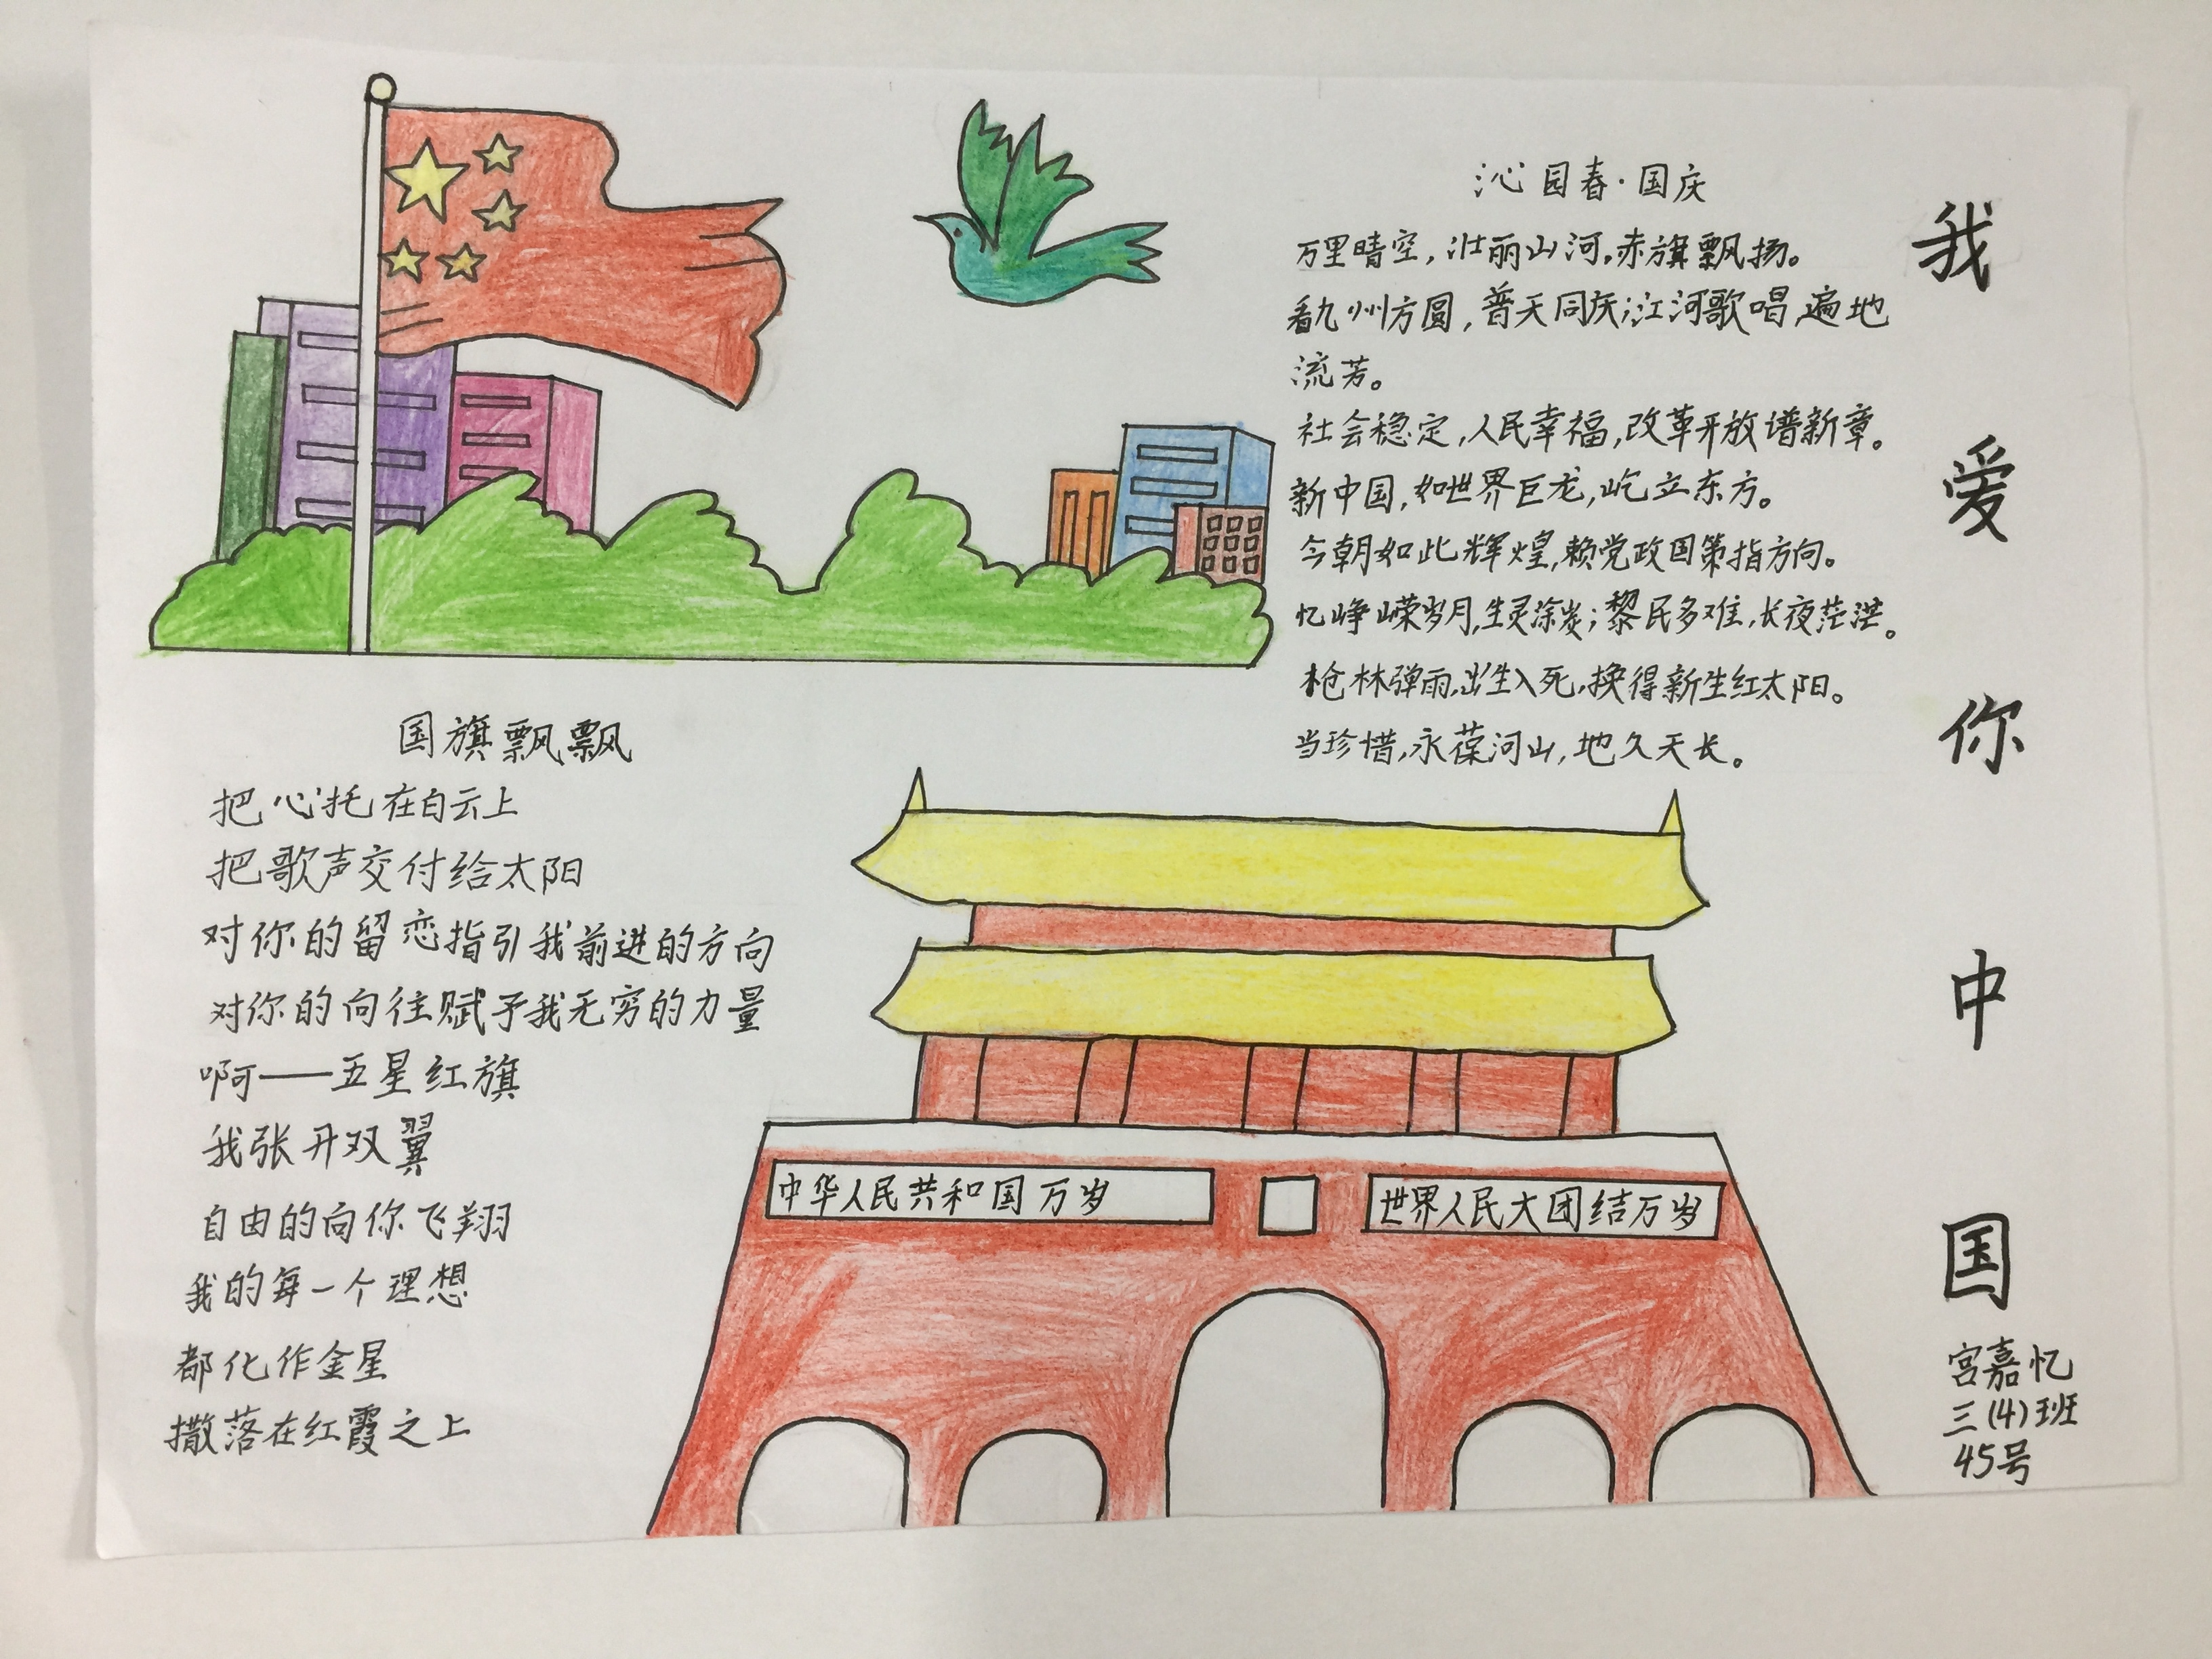 我爱你中国
宫嘉忆
三(4)班
45号
沁园春·国庆
万里晴空,壮丽山河。赤旗飘扬。
看九州方圆,普天同庆;江河歌唱,遍地
流芳。
社会稳定,人民幸福,改革开放谱新章。
新中国,如世界巨龙,屹立东方。
今朝如此辉煌,赖党政国策指方向。
忆峥嵘岁月,生灵涂炭;黎民多难,长夜茫茫。
枪林弹雨,出生入死,换得新生红太阳。
当珍惜,永葆河山,地久天长。
国旗飘飘
把心托在白云上
把歌声交付给太阳
对你的留恋指引我前进的方向
对你的向往赋予我无穷的力量
啊——五星红旗
我张开双翼
自由的向你飞翔
我的每一个理想
都化作金星
撒落在红霞之上
中华人民共和国万岁
世界人民大团结万岁